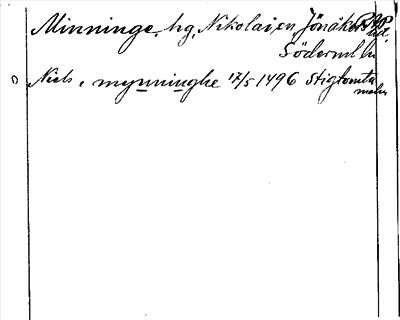 Minninge, hg, Nikolai, en, Jönåkers hd.
Söderml l.
Niels i mynninghe 17/5 1496 Stigtomta